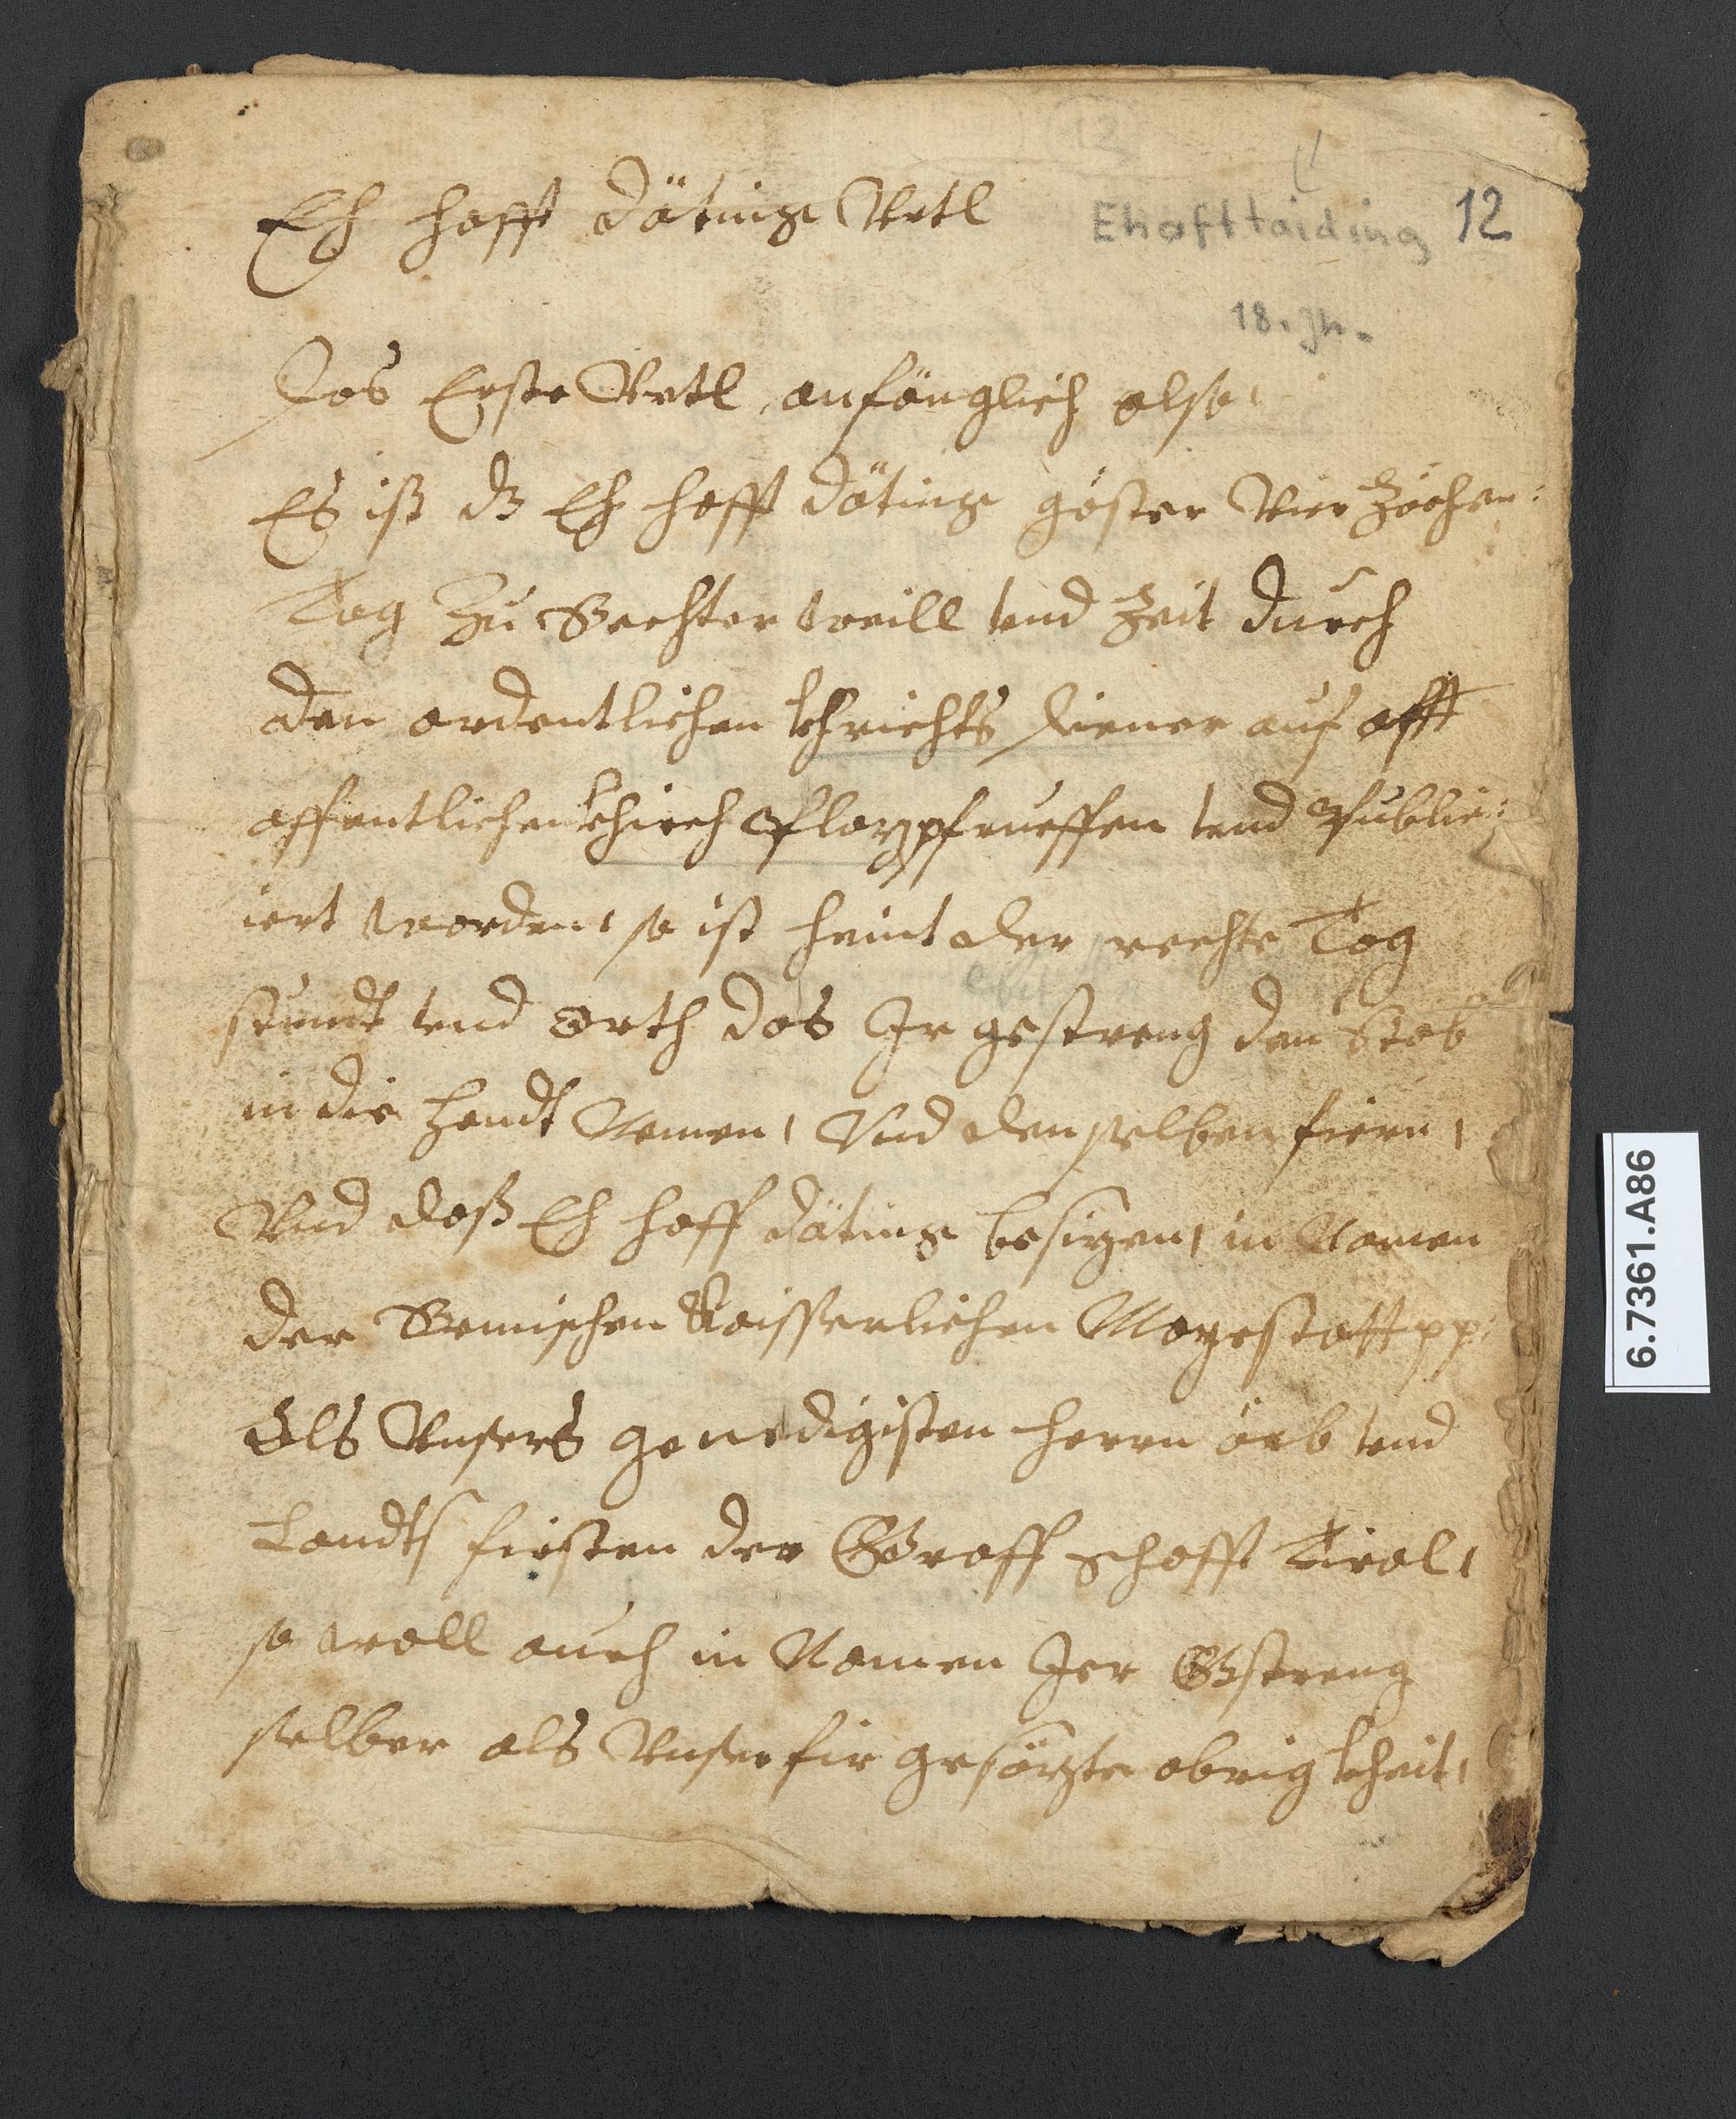 Eh hafft däting Vrtl
Ehafttaiding 12
18. Jh.
Das Erste Vrtl, anfänglich also,
Es ist dz Eh hafft däting gester Vier Zöchen:
Tag Zu Rechter weill vnd Zeit durch
den ordentlichen khrichts diener auf offt
offentlichen khirch Plaz pfrueffen vnd Publi:
iert worden, so ist heint der rechte Tag
stundt vnd orth das Ir gestreng den Stab
in die handt Nemen, Vnd den selben fiern,
Vnd daß Eh haff däting besizen, in Namen
der Remischen Kaisserlichen Mayestatt pp:
Als Vnsers genedigisten herrn örb vnd
Landts firsten der Graff schafft Tirol,
so woll auch in Namen Jer Gstreng
selber als Vnser fir gesözte obrig kheit,
6.7361.A86